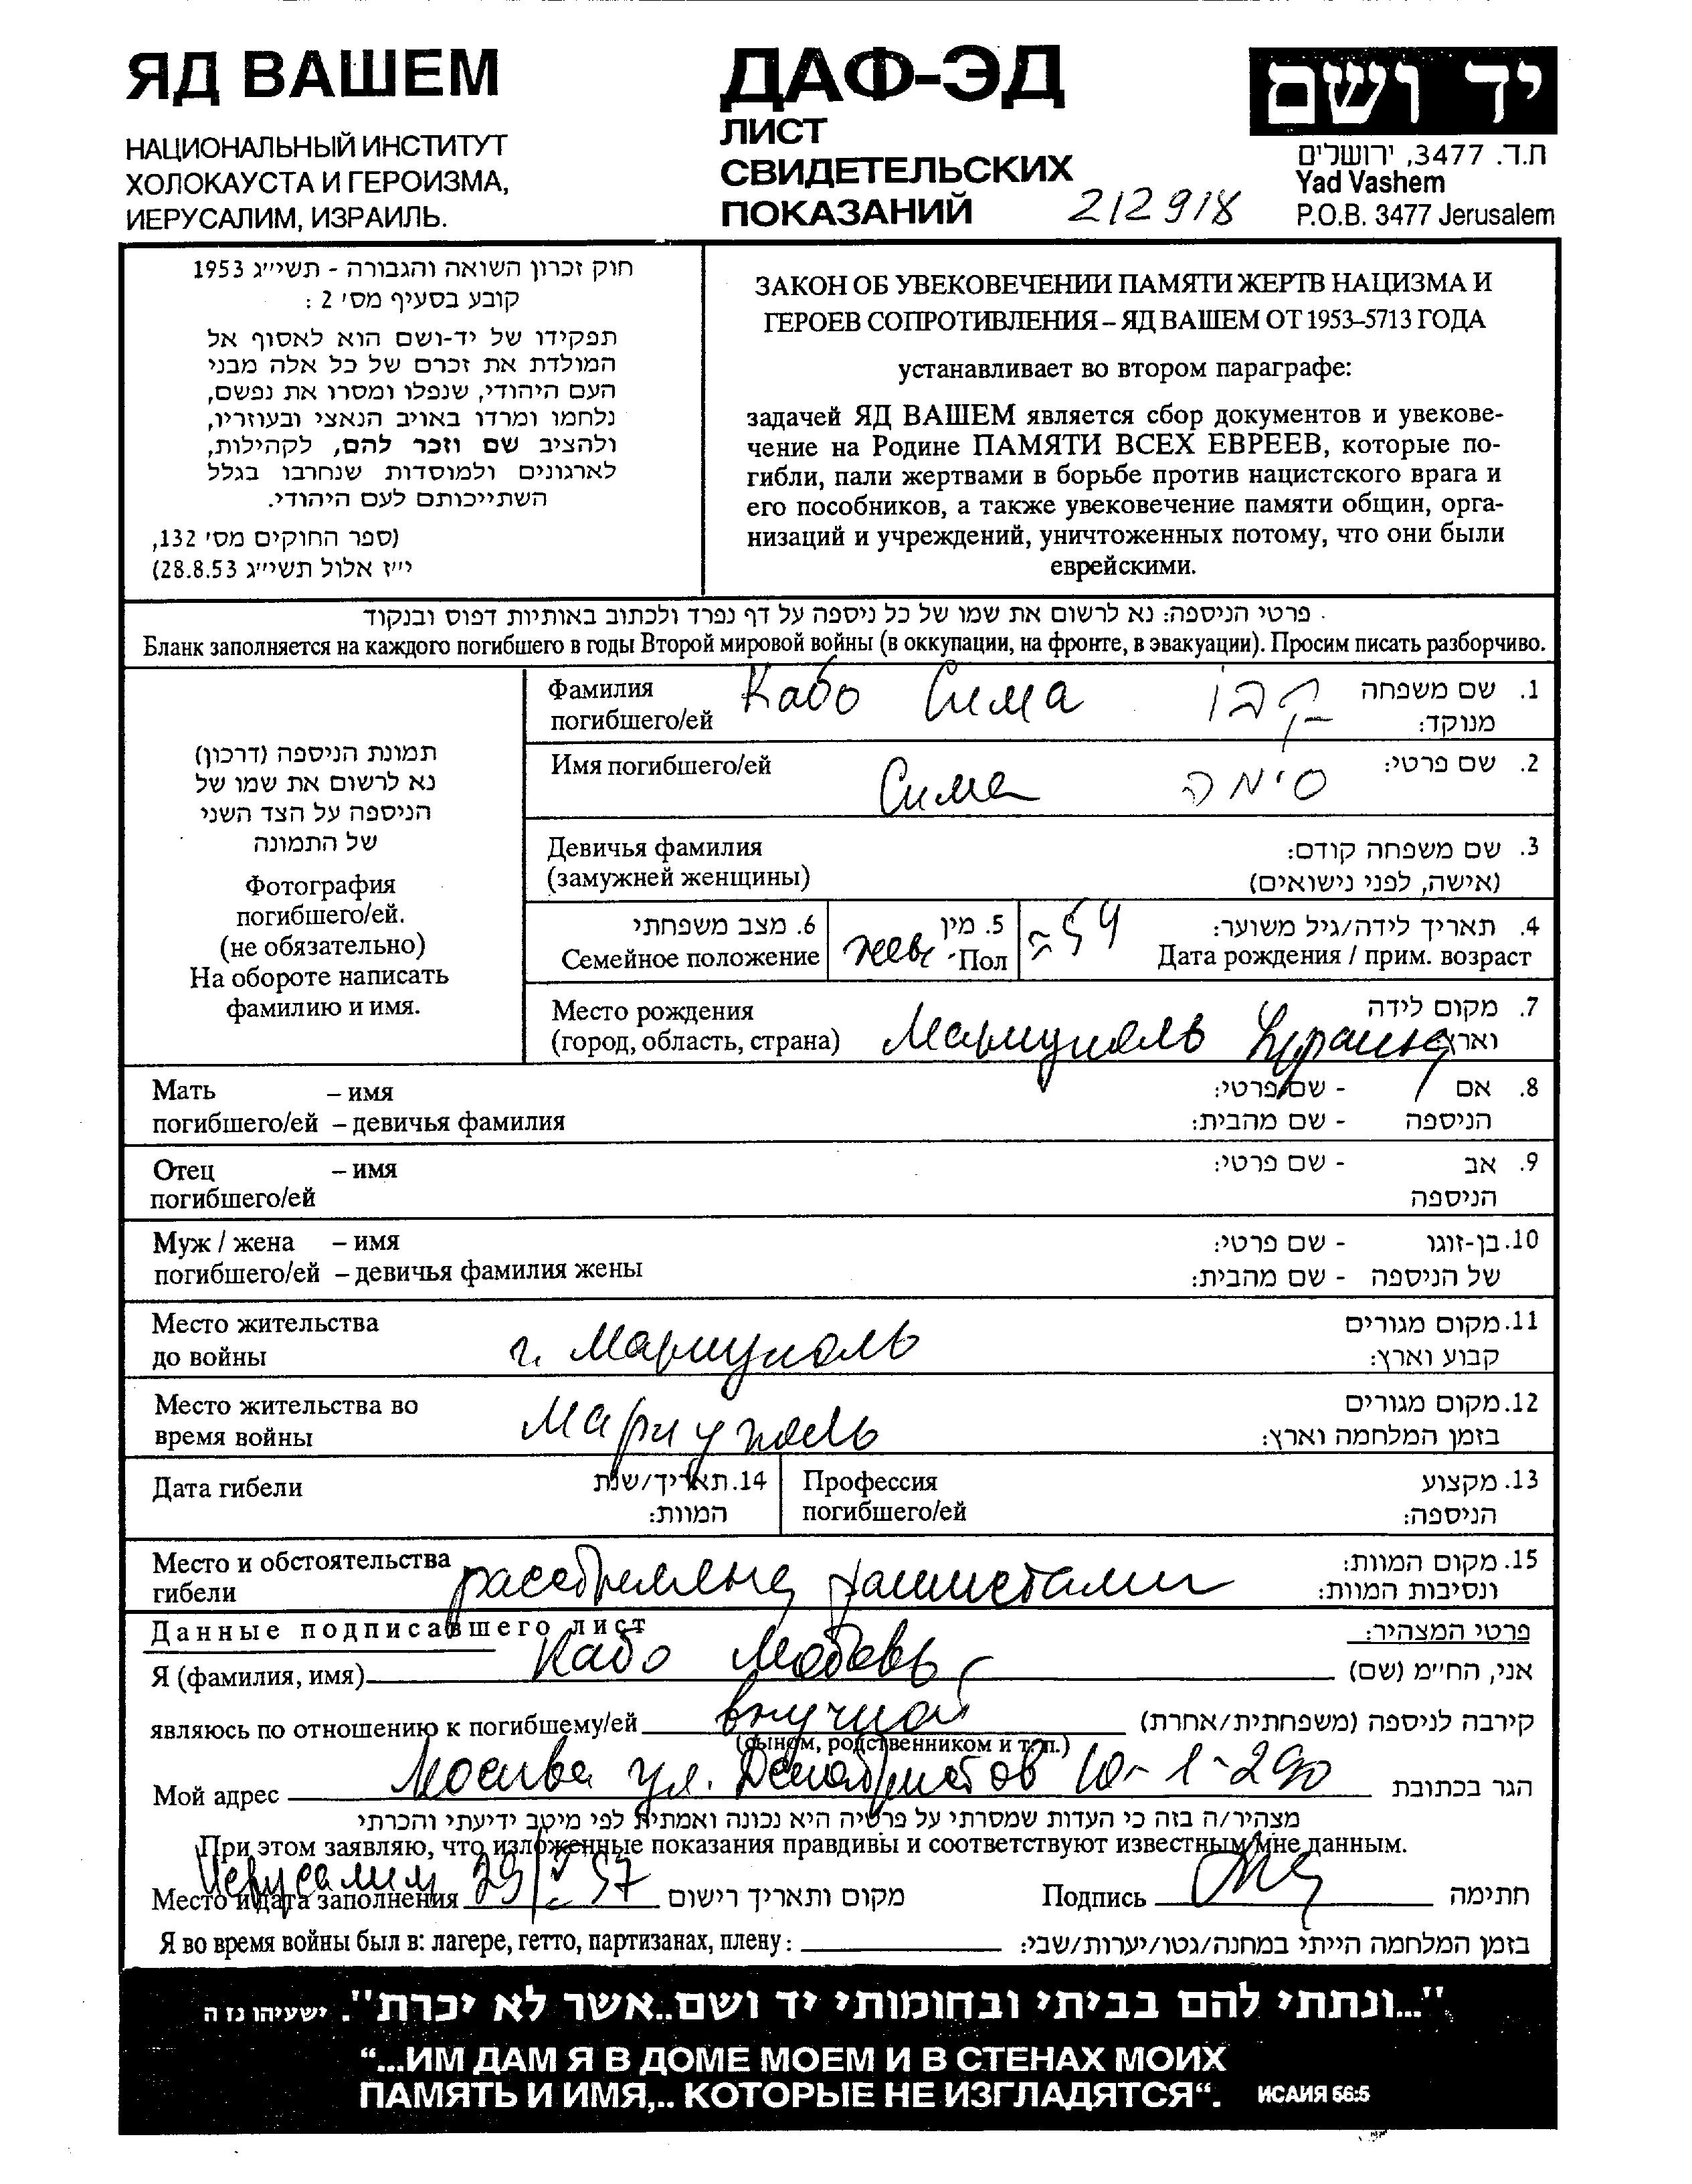 ЯД ВАШЕМ
НАЦИОНАЛЬНЫЙ ИНСТИТУТ
ХОЛОКАУСТА И ГЕРОИЗМА,
ИЕРУСАЛИМ, ИЗРАИЛЬ.
ДАФ-ЭД
ЛИСТ
СВИДЕТЕЛЬСКИХ
ПОКАЗАНИЙ 212918
יד ושם
ת.ד. 3477, ירושלים
Yad Vashem
P.O.B. 3477 Jerusalem
חוק זכרון השואה והגבורה - תשי״ג 1953
קובע בסעיף מס׳ 2 :
תפקידו של יד-ושם הוא לאסוף אל
המולדת את זכרם של כל אלה מבני
העם היהודי, שנפלו ומסרו את נפשם,
נלחמו ומרדו באויב הנאצי ובעוזריו,
ולהציב שם וזכר להם, לקהילות,
לארגונים ולמוסדות שנחרבו בגלל
השתייכותם לעם היהודי.
(ספר החוקים מס׳ 132,
י״ז אלול תשי״ג 28.8.53)
ЗАКОН ОБ УВЕКОВЕЧЕНИИ ПАМЯТИ ЖЕРТВ НАЦИЗМА И
ГЕРОЕВ СОПРОТИВЛЕНИЯ – ЯД ВАШЕМ ОТ 1953–5713 ГОДА
устанавливает во втором параграфе:
задачей ЯД ВАШЕМ является сбор документов и увекове-
чение на Родине ПАМЯТИ ВСЕХ ЕВРЕЕВ, которые по-
гибли, пали жертвами в борьбе против нацистского врага и
его пособников, а также увековечение памяти общин, орга-
низаций и учреждений, уничтоженных потому, что они были
еврейскими.
פרטי הניספה: נא לרשום את שמו של כל ניספה על דף נפרד ולכתוב באותיות דפוס ובנקוד
Бланк заполняется на каждого погибшего в годы Второй мировой войны (в оккупации, на фронте, в эвакуации). Просим писать разборчиво.
תמונת הניספה (דרכון)
נא לרשום את שמו של
הניספה על הצד השני
של התמונה
Фотография
погибшего/ей.
(не обязательно)
На обороте написать
фамилию и имя.
Фамилия Кабо Сима קבו 1. שם משפחה
погибшего/ей מנוקד:
Имя погибшего/ей Сима סימה 2. שם פרטי:
Девичья фамилия 3. שם משפחה קודם:
(замужней женщины) (אישה, לפני נישואים)
6. מצב משפחתי 5. מין ≈54 4. תאריך לידה/גיל משוער:
Семейное положение жен Пол Дата рождения / прим. возраст
Место рождения 7. מקום לידה
(город, область, страна) Мариуполь Украина וארץ
Мать – имя - שם פרטי: 8. אם
погибшего/ей – девичья фамилия - שם מהבית: הניספה
Отец – имя - שם פרטי: 9. אב
погибшего/ей הניספה
Муж / жена – имя - שם פרטי: 10. בן-זוגו
погибшего/ей – девичья фамилия жены - שם מהבית: של הניספה
Место жительства 11. מקום מגורים
до войны г. Мариуполь קבוע וארץ:
Место жительства во 12. מקום מגורים
время войны Мариуполь בזמן המלחמה וארץ:
Дата гибели 14. תאריך/שנת Профессия 13. מקצוע
המוות: погибшего/ей הניספה:
Место и обстоятельства 15. מקום המוות:
гибели расстреляна фашистами ונסיבות המוות:
Данные подписавшего лист פרטי המצהיר:
Я (фамилия, имя) Кабо Любовь אני, הח״מ (שם)
являюсь по отношению к погибшему/ей внучкой קירבה לניספה (משפחתית/אחרת)
(сыном, родственником и т.п.)
Мой адрес Москва ул. Декабристов 10-1-290 הגר בכתובת
מצהיר/ה בזה כי העדות שמסרתי על פרטיה היא נכונה ואמתית לפי מיטב ידיעתי והכרתי
При этом заявляю, что изложенные показания правдивы и соответствуют известным мне данным.
Иерусалим 29/I 97
Место и дата заполнения מקום ותאריך רישום Подпись חתימה
Я во время войны был в: лагере, гетто, партизанах, плену: בזמן המלחמה הייתי במחנה/גטו/יערות/שבי:
"...ונתתי להם בביתי ובחומותי יד ושם..אשר לא יכרת". ישעיהו נז ה
“...ИМ ДАМ Я В ДОМЕ МОЕМ И В СТЕНАХ МОИХ
ПАМЯТЬ И ИМЯ,.. КОТОРЫЕ НЕ ИЗГЛАДЯТСЯ“. ИСАИЯ 56:5